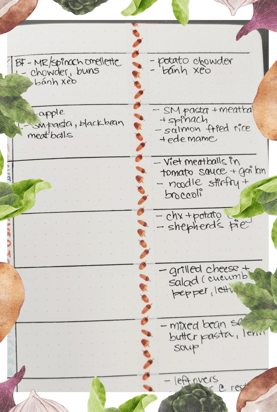 BF - MR/spinach omellette
- chowder, buns
bánh xèo
apple
pasta, black bean
meatballs
- potato chowder
- bánh xèo
- SM pasta + meatba
+ spinach
- salmon fried rice
+ edemame
- Viet meatballs in
tomato sauce + gai lan
- noodle stirfry +
broccoli
- chx + potato
- shepherd's pie
- grilled cheese +
salad (cucumb
pepper, lettu
- mixed bean sa
butter pasta,
soup
- leftovers